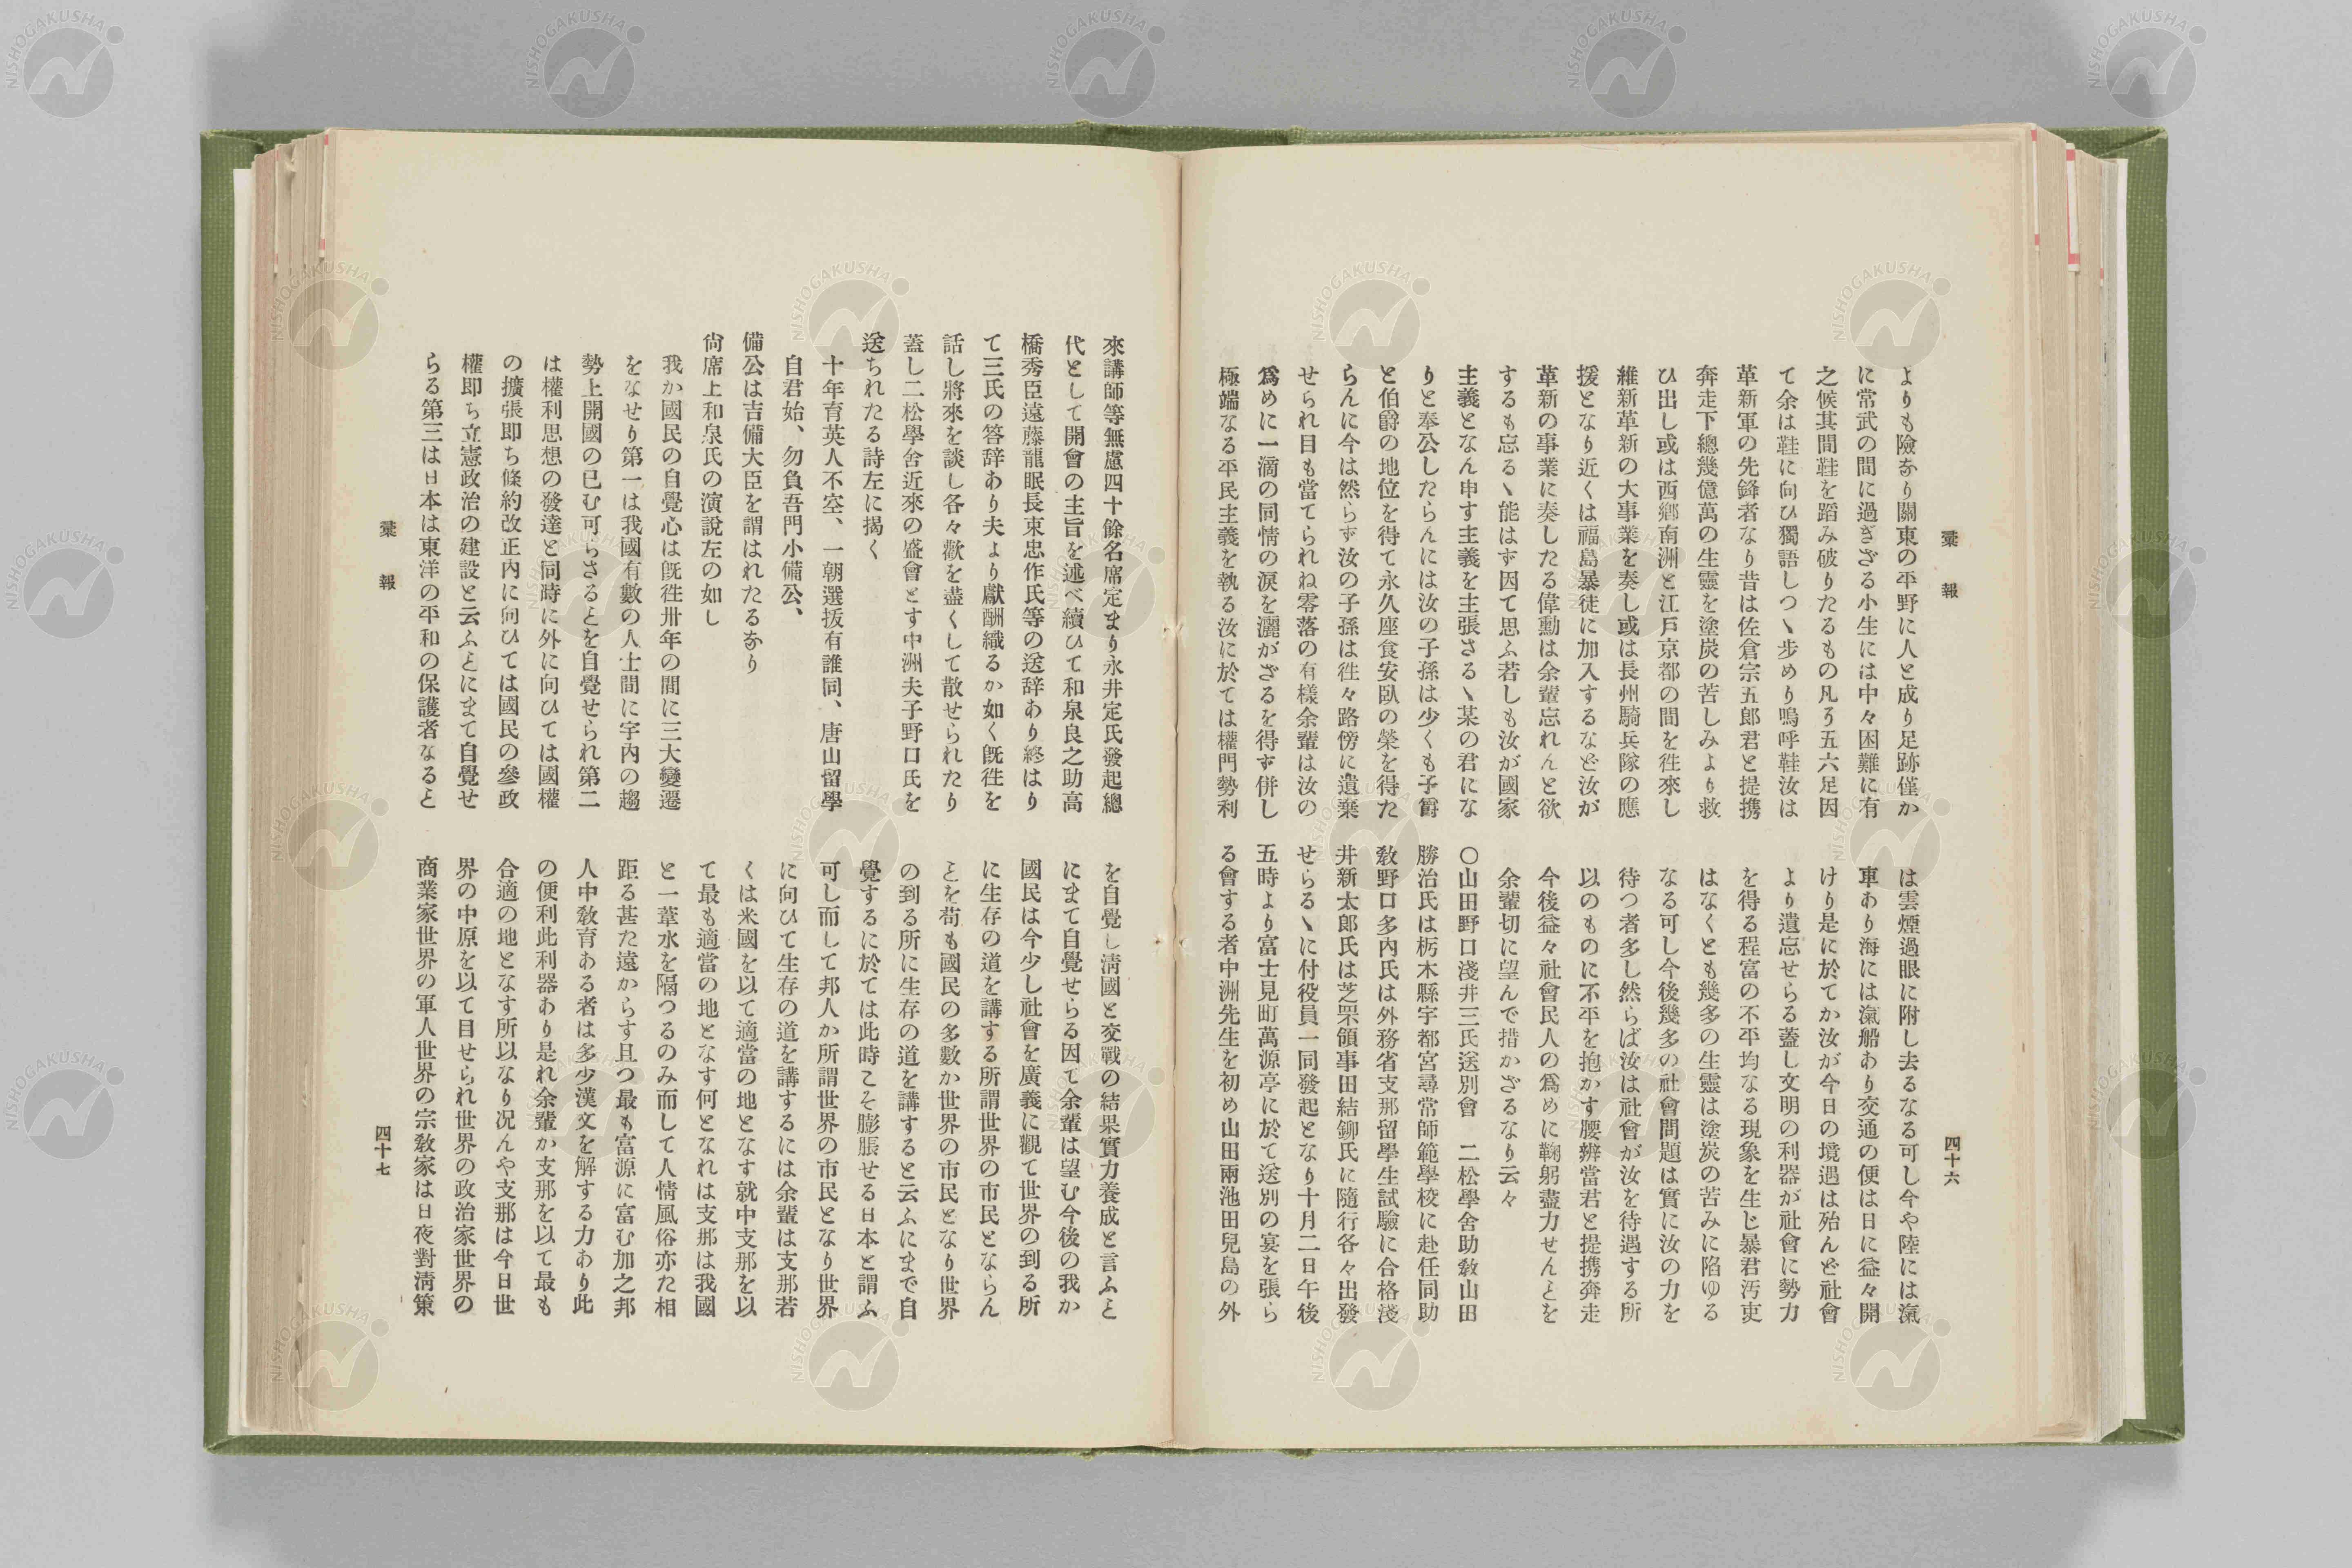 彙報
四十六
よりも險なり關東の平野に人と成り足跡僅か
に常武の間に過ぎざる小生には中々困難に有
之候其間鞋を蹈み破りたるもの凡う五六足因
て余は鞋に向ひ獨語しつヽ步めり嗚呼鞋汝は
革新軍の先鋒者なり昔は佐倉宗五郎君と提携
奔走下總幾億萬の生靈を塗炭の苦しみより救
ひ出し或は西鄕南洲と江戶京都の間を徃來し
維新革新の大事業を奏し或は長州騎兵隊の應
援となり近くは福島暴徒に加入するなど汝が
革新の事業に奏したる偉勳は余輩忘れんと欲
するも忘るヽ能はず因て思ふ若しも汝が國家
主義となん申す主義を主張さるヽ某の君にな
りと奉公したらんには汝の子孫は少くも子爵
と伯爵の地位を得て永久座食安臥の榮を得た
らんに今は然らず汝の子孫は徃々路傍に遺棄
せられ目も當てられね零落の有樣余輩は汝の
爲めに一滴の同情の淚を灑がざるを得ず併し
極端なる平民主義を執る汝に於ては權門勢利
は雲煙過眼に附し去るなる可し今や陸には滊
車あり海には滊船あり交通の便は日に益々開
けり是に於てか汝が今日の境遇は殆んど社會
より遺忘せらる蓋し文明の利器が社會に勢力
を得る程富の不平均なる現象を生じ暴君汚吏
はなくとも幾多の生靈は塗炭の苦みに陷ゆる
なる可し今後幾多の社會問題は實に汝の力を
待つ者多し然らば汝は社會が汝を待遇する所
以のものに不平を抱かす腰辨當君と提携奔走
今後益々社會民人の爲めに鞠躬盡力せんとを
余輩切に望んで措かざるなり云々
〇山田野口淺井三氏送別會　二松學舍助敎山田
勝治氏は栃木縣宇都宮尋常師範學校に赴任同助
敎野口多內氏は外務省支那留學生試驗に合格淺
井新太郎氏は芝罘領事田結鉚氏に隨行各々出發
せらるヽに付役員一同發起となり十月二日午後
五時より富士見町萬源亭に於て送別の宴を張ら
る會する者中洲先生を初め山田兩池田兒島の外
彙報
四十七
來講師等無慮四十餘名席定まり永井定氏發起總
代として開會の主旨を述べ續ひて和泉良之助高
橋秀臣遠藤龍眠長束忠作氏等の送辞あり終はり
て三氏の答辞あり夫より獻酬織るか如く旣徃を
話し將來を談し各々歡を盡くして散せられたり
蓋し二松學舍近來の盛會とす中洲夫子野口氏を
送ちれたる詩左に揭く
十年育英人不空、一朝選拔有誰同、唐山留學
自君始、勿負吾門小備公、
備公は吉備大臣を謂はれたるなり
尙席上和泉氏の演說左の如し
我か國民の自覺心は旣徃卅年の間に三大變遷
をなせり第一は我國有數の人士間に宇內の趨
勢上開國の已む可らさるとを自覺せられ第二
は權利思想の發達と同時に外に向ひては國權
の擴張即ち條約改正內に向ひては國民の參政
權即ち立憲政治の建設と云ふとにまて自覺せ
らる第三は日本は東洋の平和の保護者なると
を自覺し淸國と交戰の結果實力養成と言ふと
にまて自覺せらる因て余輩は望む今後の我か
國民は今少し社會を廣義に觀て世界の到る所
に生存の道を講する所謂世界の市民とならん
とを苟も國民の多數か世界の市民となり世界
の到る所に生存の道を講すると云ふにまで自
覺するに於ては此時こそ膨脹せる日本と謂ふ
可し而して邦人か所謂世界の市民となり世界
に向ひて生存の道を講するには余輩は支那若
くは米國を以て適當の地となす就中支那を以
て最も適當の地となす何となれは支那は我國
と一葦水を隔つるのみ而して人情風俗亦た相
距る甚た遠からす且つ最も富源に富む加之邦
人中敎育ある者は多少漢文を解する力あり此
の便利此利器あり是れ余輩か支那を以て最も
合適の地となす所以なり况んや支那は今日世
界の中原を以て目せられ世界の政治家世界の
商業家世界の軍人世界の宗敎家は日夜對淸策
NISHOGAKUSHA